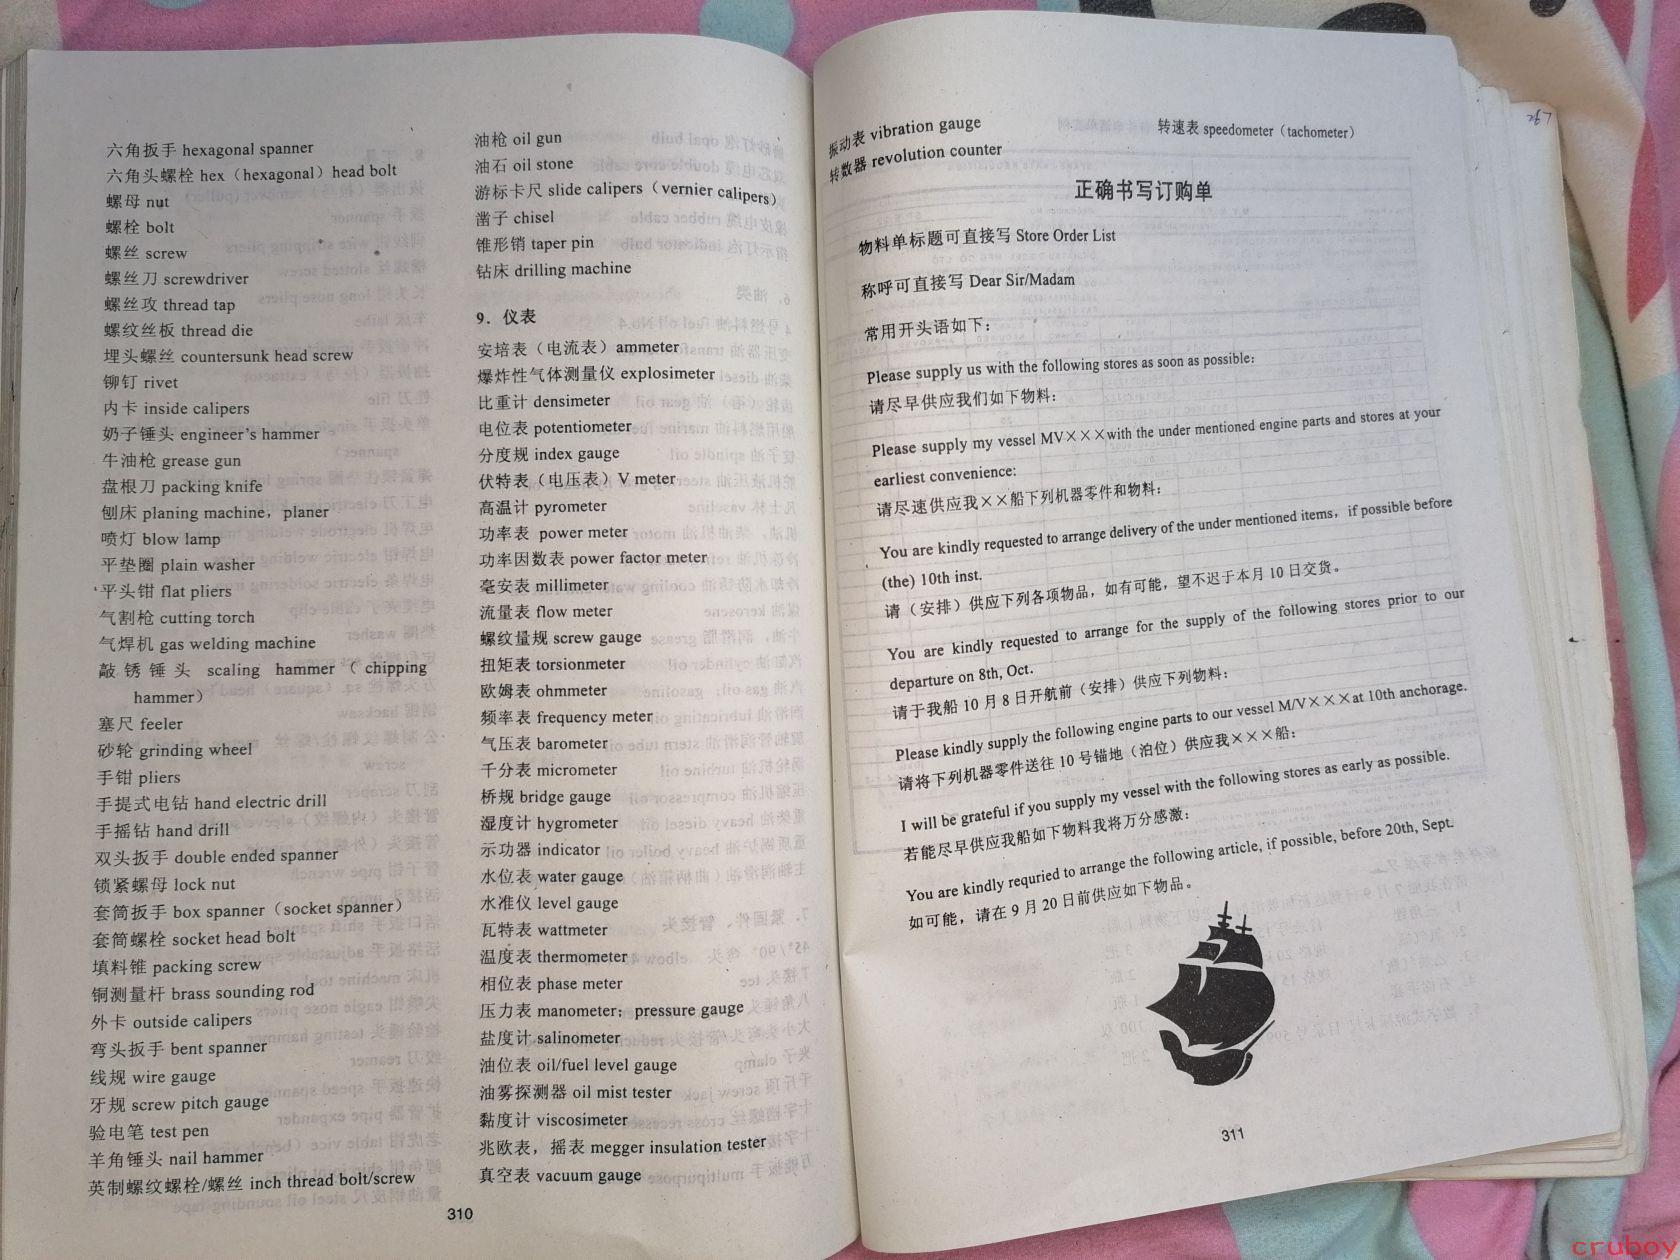 六角扳手 hexagonal spanner
六角头螺栓 hex（hexagonal）head bolt
螺母 nut
螺栓 bolt
螺丝 screw
螺丝刀 screwdriver
螺丝攻 thread tap
螺纹丝板 thread die
埋头螺丝 countersunk head screw
铆钉 rivet
内卡 inside calipers
奶子锤头 engineer's hammer
牛油枪 grease gun
盘根刀 packing knife
刨床 planing machine，planer
喷灯 blow lamp
平垫圈 plain washer
平头钳 flat pliers
气割枪 cutting torch
气焊机 gas welding machine
敲锈锤头 scaling hammer（chipping
hammer）
塞尺 feeler
砂轮 grinding wheel
手钳 pliers
手提式电钻 hand electric drill
手摇钻 hand drill
双头扳手 double ended spanner
锁紧螺母 lock nut
套筒扳手 box spanner（socket spanner）
套筒螺栓 socket head bolt
填料锥 packing screw
铜测量杆 brass sounding rod
外卡 outside calipers
弯头扳手 bent spanner
线规 wire gauge
牙规 screw pitch gauge
验电笔 test pen
羊角锤头 nail hammer
英制螺纹螺栓/螺丝 inch thread bolt/screw
油枪 oil gun
油石 oil stone
游标卡尺 slide calipers（vernier calipers）
凿子 chisel
锥形销 taper pin
钻床 drilling machine
9．仪表
安培表（电流表）ammeter
爆炸性气体测量仪 explosimeter
比重计 densimeter
电位表 potentiometer
分度规 index gauge
伏特表（电压表）V meter
高温计 pyrometer
功率表 power meter
功率因数表 power factor meter
毫安表 millimeter
流量表 flow meter
螺纹量规 screw gauge
扭矩表 torsionmeter
欧姆表 ohmmeter
频率表 frequency meter
气压表 barometer
千分表 micrometer
桥规 bridge gauge
湿度计 hygrometer
示功器 indicator
水位表 water gauge
水准仪 level gauge
瓦特表 wattmeter
温度表 thermometer
相位表 phase meter
压力表 manometer；pressure gauge
盐度计 salinometer
油位表 oil/fuel level gauge
油雾探测器 oil mist tester
黏度计 viscosimeter
兆欧表，摇表 megger insulation tester
真空表 vacuum gauge
310
振动表 vibration gauge
转速表 speedometer（tachometer）
转数器 revolution counter
正确书写订购单
物料单标题可直接写 Store Order List
称呼可直接写 Dear Sir/Madam
常用开头语如下：
Please supply us with the following stores as soon as possible:
请尽早供应我们如下物料：
Please supply my vessel MV×××with the under mentioned engine parts and stores at your
earliest convenience:
请尽速供应我××船下列机器零件和物料：
You are kindly requested to arrange delivery of the under mentioned items，if possible before
(the) 10th inst.
请（安排）供应下列各项物品，如有可能，望不迟于本月 10 日交货。
You are kindly requested to arrange for the supply of the following stores prior to our
departure on 8th, Oct.
请于我船 10 月 8 日开航前（安排）供应下列物料：
Please kindly supply the following engine parts to our vessel M/V×××at 10th anchorage.
请将下列机器零件送往 10 号锚地（泊位）供应我×××船：
I will be grateful if you supply my vessel with the following stores as early as possible.
若能尽早供应我船如下物料我将万分感激：
You are kindly requried to arrange the following article, if possible, before 20th, Sept.
如可能，请在 9 月 20 日前供应如下物品。
311
267
cruboy